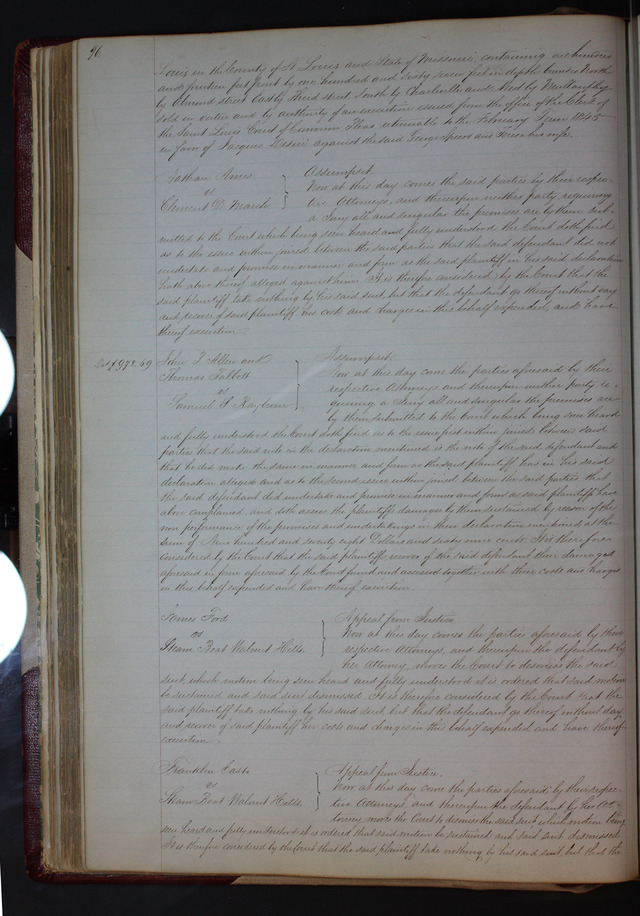 96
Louis in the County of St Louis and State of Missouri, containing one hundred
and fourteen feet front by one hundred and sixty seven feet in depth bounded North
by Almond Street East by Third Street South by and West by
sold in virtue and by authority of an execution issued from the office of the Clerk of
the Saint Louis Court of Common Pleas returnable to the February Term 1845
in favor of Jacques against the said George Speers and his wife.
Nathan Ames
vs
Clement D. March
Assumpsit
Now at this day comes the said parties by their respec-
tive Attorneys, and thereupon neither party requiring
a Jury all and singular the premises are by them sub-
mitted to the Court which being seen heard and fully understood the Court doth find
as to the issue within joined between the said parties that the said defendant did not
undertake and promise in manner and form as the said plaintiff in his said declaration
hath above thereof alleged against him. It is therefore considered by the Court that the
said plaintiff take nothing by his said suit, but that the defendant go thereof without day
and recover of said plaintiff his costs and charges in this behalf expended, and have
thereof execution
Dbt $972.69
John J Allen and
Thomas Talbott
vs
Samuel S Rayburn
Assumpsit
Now at this day come the parties aforesaid by their
respective Attorneys and thereupon neither party re-
quiring a Jury all and singular the premises are
by them submitted to the Court which being seen heard
and fully understood the Court doth find as to the issue first within joined between said
parties that the said note in the declaration mentioned is the note of the said defendant and
that he did make the same in manner and form as the said plaintiff has in his said
declaration alleged and as to the second issue within joined between the said parties that
the said defendant did undertake and promise in manner and form as said plaintiff have
above complained, and doth assess the plaintiffs damages by them sustained by reason of the
non performance of the promises and undertakings in their declaration mentioned at the
sum of Nine hundred and seventy eight Dollars and sixty nine cents. It is therefore
considered by the Court that the said plaintiffs recover of the said defendant their damages
aforesaid in form aforesaid by the Court found and assessed together with their costs and charges
in this behalf expended and have thereof execution.
James Ford
vs
Steam Boat Walnut Hills
Appeal from Justice
Now at this day comes the parties aforesaid by their
respective Attorneys, and thereupon the defendant by
her Attorney moves the Court to dismiss the said
suit which motion being seen heard and fully understood it is ordered that said motion
be sustained and said suit dismissed It is therefore considered by the Court that the
said plaintiff take nothing by his said suit, but that the defendant go thereof without day
and recover of said plaintiff her costs and charges in this behalf expended and have thereof
execution
Franklin Casto
vs
Steam Boat Walnut Hills
Appeal from Justice.
Now at this day come the parties aforesaid, by their respec-
tive Attorneys, and thereupon the defendant by her At-
torney moves the Court to dismiss the said suit which motion being
seen heard and fully understood it is ordered that said motion be sustained and said suit dismissed
It is therefore considered by the Court that the said plaintiff take nothing by his said suit, but that the